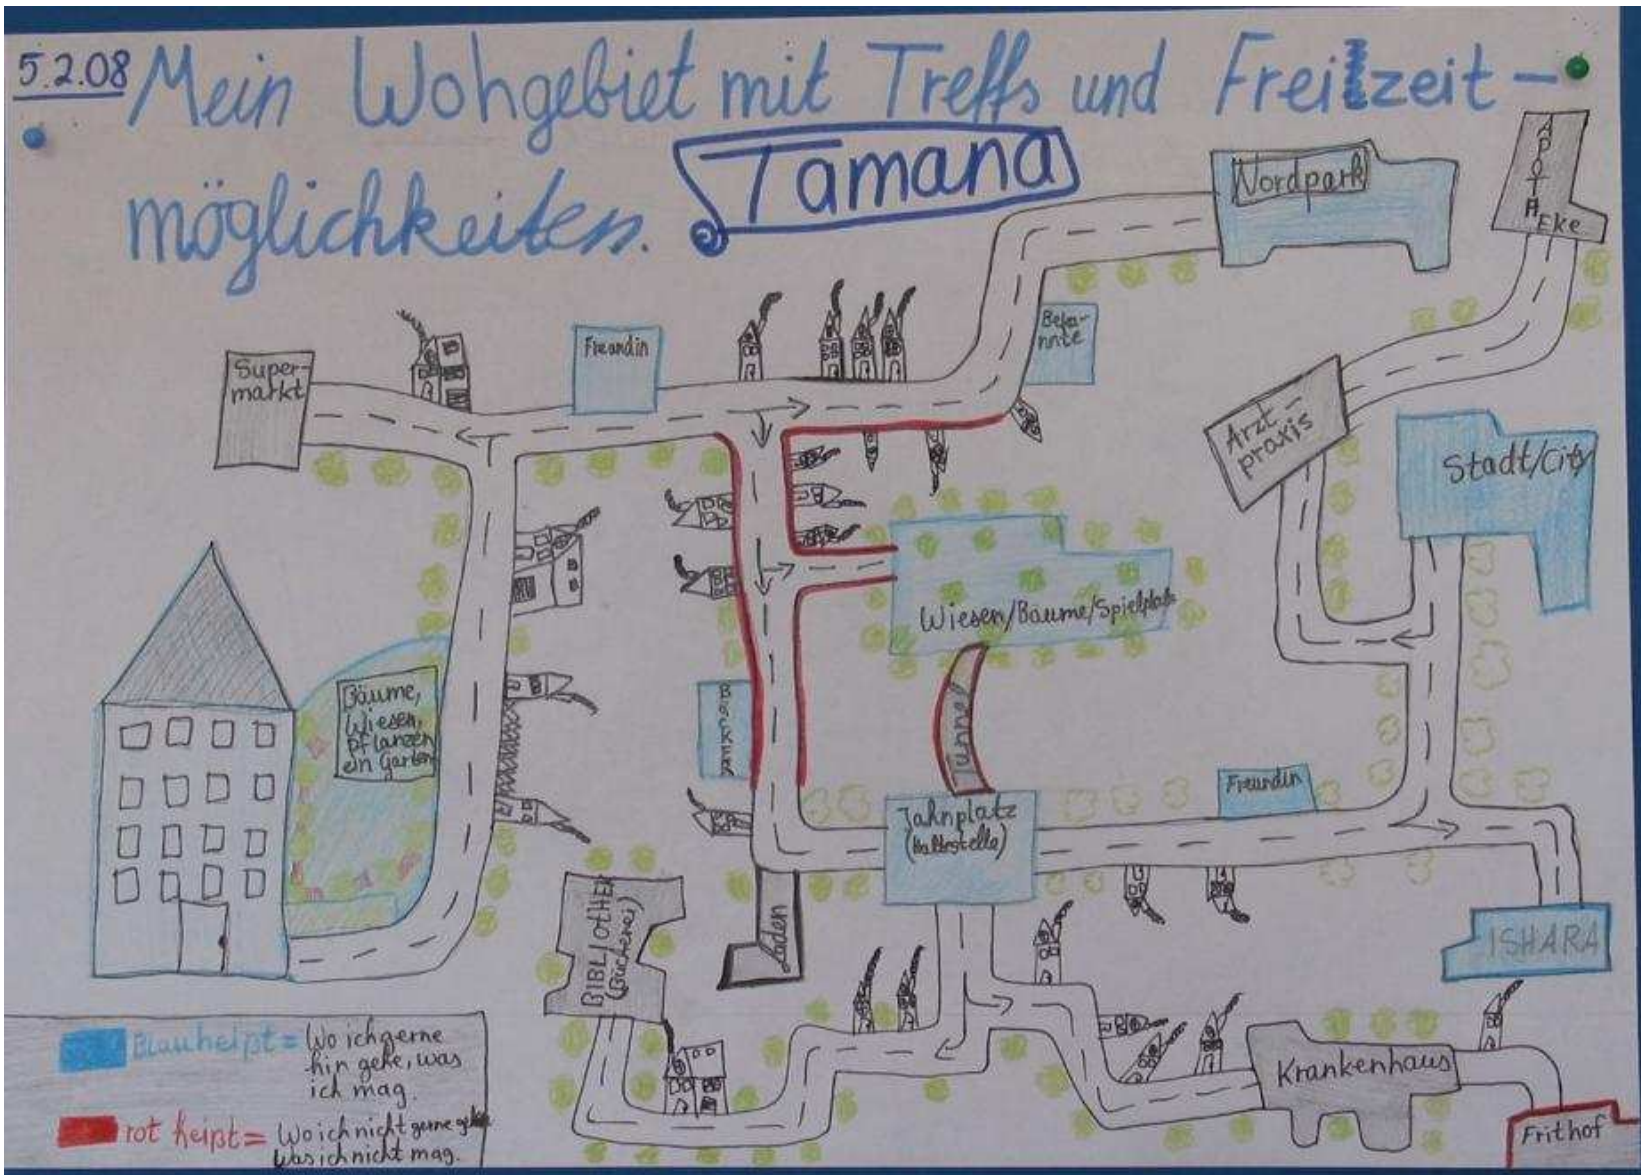 5.2.08
Mein Wohgebiet mit Treffs und Freizeit-
möglichkeiten.
Tamana
Nordpark
APOTH
Eke
Super-
markt
Freundin
Beka-
nnte
Arzt-
praxis
Stadt/City
Wiesen/Bäume/Spielplatz
Bäume,
Wiesen,
Pflanzen
ein Garten
BÄCKER
Tunnel
Jahnplatz
(Haltestelle)
Freundin
BIBLIOTHEK
(Bücherei)
Laden
ISHARA
Krankenhaus
Frithof
Blau heißt = Wo ich gerne
hin gehe, was
ich mag.
rot heißt = Wo ich nicht gerne gehe
Was ich nicht mag.